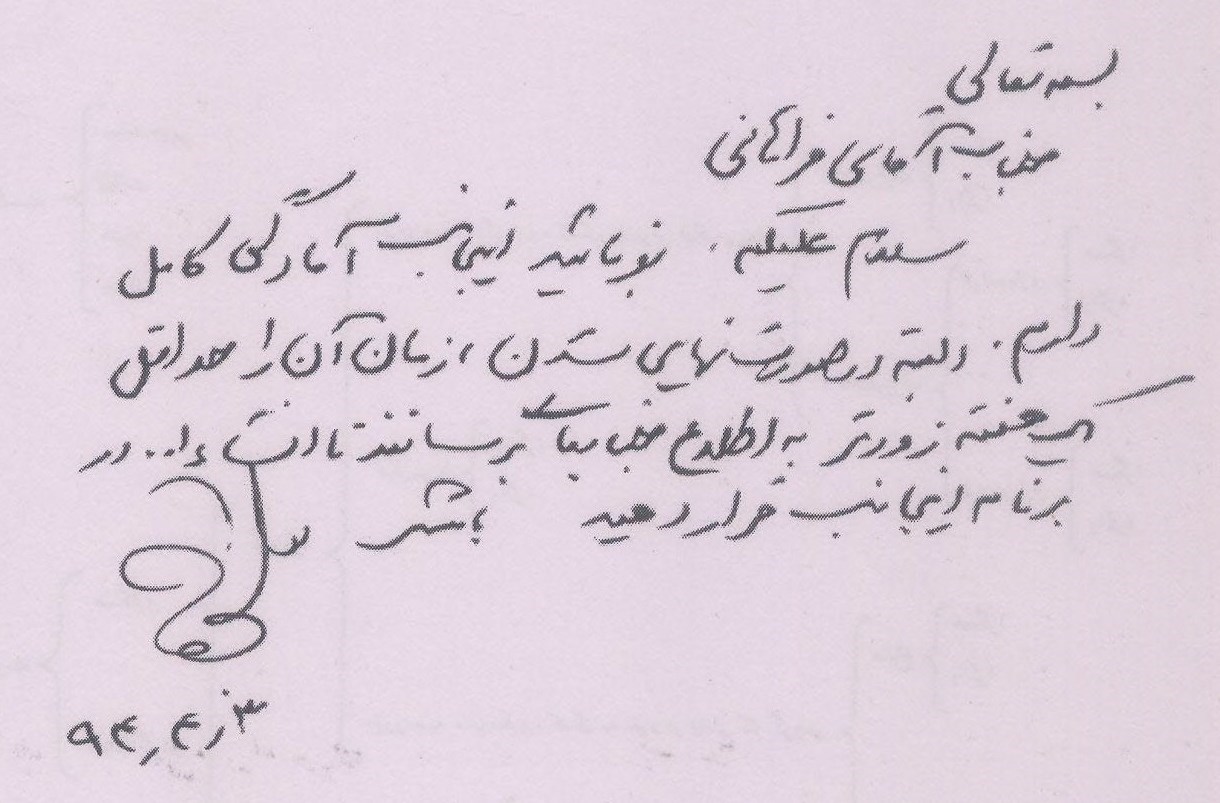 بسمه تعالی
جناب آقای فراهانی
سلام علیکم . اینجانب آمادگی کامل
دارم . البته در صورت نهایی شدن ، زمان آن را حداقل
یک هفته زودتر به اطلاع جناب برسانند تا انشاءا.. در
برنامه اینجانب قرار دهید با تشکر
۹۴٫۴٫۳